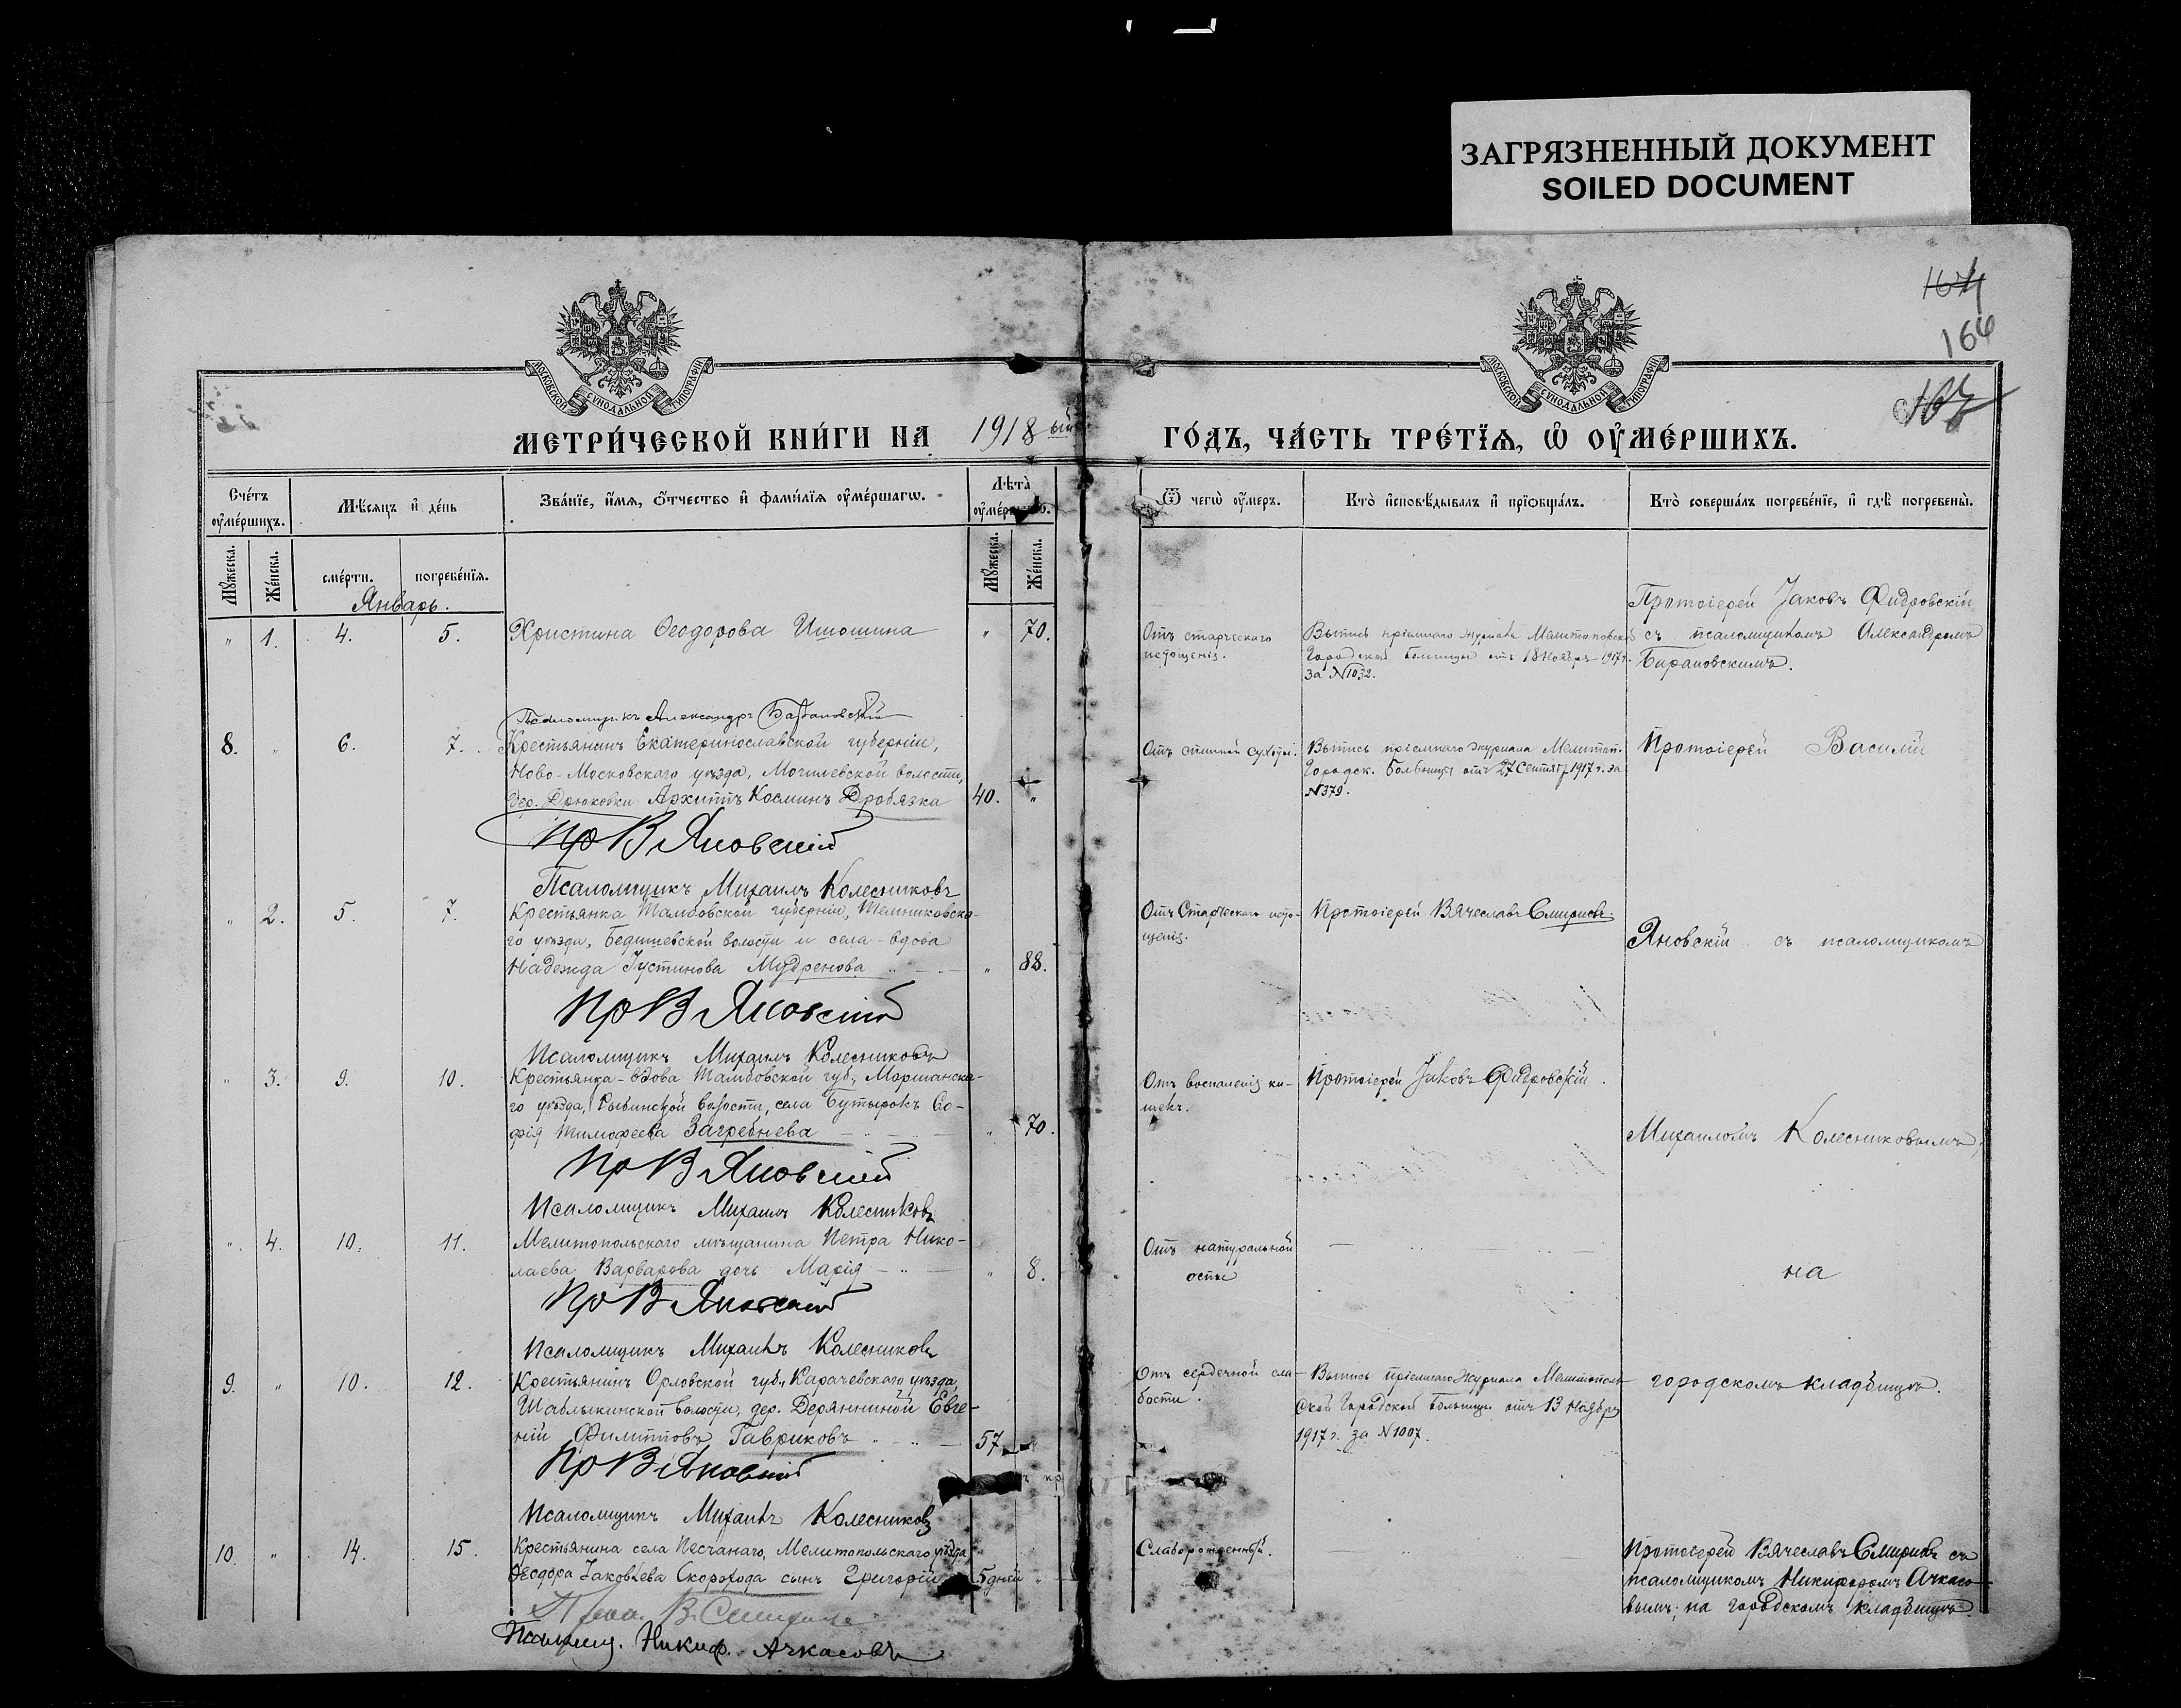 ЗАГРЯЗНЕННЫЙ ДОКУМЕНТ
SOILED DOCUMENT
164
166
167
МОСКОВСКОЙ СѴНОДАЛЬНОЙ ТИПОГРАФІИ
МОСКОВСКОЙ СѴНОДАЛЬНОЙ ТИПОГРАФІИ
МЕТРИ́ЧЕСКОЙ КНИ́ГИ НА 1918 ый
ГО́ДЪ, ЧА́СТЬ ТРЕ́ТЇѦ, Ѡ ОУМЕ́РШИХЪ.
Сче́тъ оумершихъ.
Мѣсяцъ и де́нь
Зва́нїе, и́мя, ѻ́тчество и фами́лїя оуме́ршагѡ.
Лѣта̀ оуме́ршагѡ.
Ѿ чегѡ оумеръ.
Кто̀ исповѣ́дывалъ и прїѡбща́лъ.
Кто̀ соверша́лъ погребе́нїе, и гдѣ погребены̀.
Мꙋжеска.
Же́нска.
сме́рти.
погребе́нїя.
Мꙋжеска.
Же́нска.
Январь.
" 1. 4. 5. Христина Ѳеодорова " 70.
Отъ старческаго
истощенія.
Выпись пріемнаго журнала Мелитопольск
Городской больницы отъ 18 Ноября 1917 г.
за №1032.
Протоіерей Іаковъ Фидровскій
съ псаломщикомъ Александромъ
Барановскимъ.
Псаломщикъ Александръ Барановскій
8. " 6. 7. Крестьянинъ Екатеринославской губерніи,
Ново-Московскаго уѣзда, Могилевской волости,
дер. Дрюковки Архиппъ Косминъ Дробязка 40. "
Отъ спинной сухотки.
Выпись пріемнаго журнала Мелитоп.
Городск. Больницы отъ 27 Сентяб 1917 г. за
№379.
Протоіерей Василій
Пр В Яновскій
Псаломщикъ Михаилъ Колесниковъ
" 2. 5. 7. Крестьянка Тамбовской губерніи, Темниковска-
го уѣзда, Бедишевской волости и села - вдова
Надежда Іустинова Мудренова " 88.
Отъ Старческаго исто-
щенія.
Протоіерей Вячеславъ Смирновъ.
Яновскій съ псаломщикомъ
Пр В Яновскій
Псаломщикъ Михаилъ Колесниковъ
" 3. 9. 10. Крестьянка - вдова Тамбовской губ., Моршанска-
го уѣзда, волости, села Бутырокъ Со-
фія Тимофеева Загребнева " 70.
Отъ воспаленія ки-
шекъ.
Протоіерей Іаковъ Фидровскій.
Михаиломъ Колесниковымъ,
Пр В Яновскій
Псаломщикъ Михаилъ Колесниковъ
" 4. 10. 11. Мелитопольскаго мѣщанина Петра Нико-
лаева Варварова дочь Марія " 8.
Отъ натуральной
оспы
на
Пр В Яновскій
Псаломщикъ Михаилъ Колесниковъ
9. " 10. 12. Крестьянинъ Орловской губ., Карачевскаго уѣзда,
Шаблыкинской волости, дер. Дерянниной Евге-
ній Филипповъ Гавриковъ 57
Отъ сердечной сла-
бости.
Выпись пріемнаго журнала Мелитополь-
ской Городской больницы отъ 13 Ноября
1917 г. за №1007.
городскомъ кладбищѣ.
Пр В Яновскій
Псаломщикъ Михаилъ Колесниковъ
10. " 14. 15. Крестьянина села Песчанаго, Мелитопольскаго уѣзда,
Ѳеодора Іаковлева Скорохода сынъ Григорій 5 дней "
Слаборожденный.
Протоіерей Вячеславъ Смирновъ съ
псаломщикомъ Никифоромъ Ачкасо-
вымъ, на городскомъ кладбищѣ
В. Смирновъ
Псаломщ. Никиф. Ачкасовъ